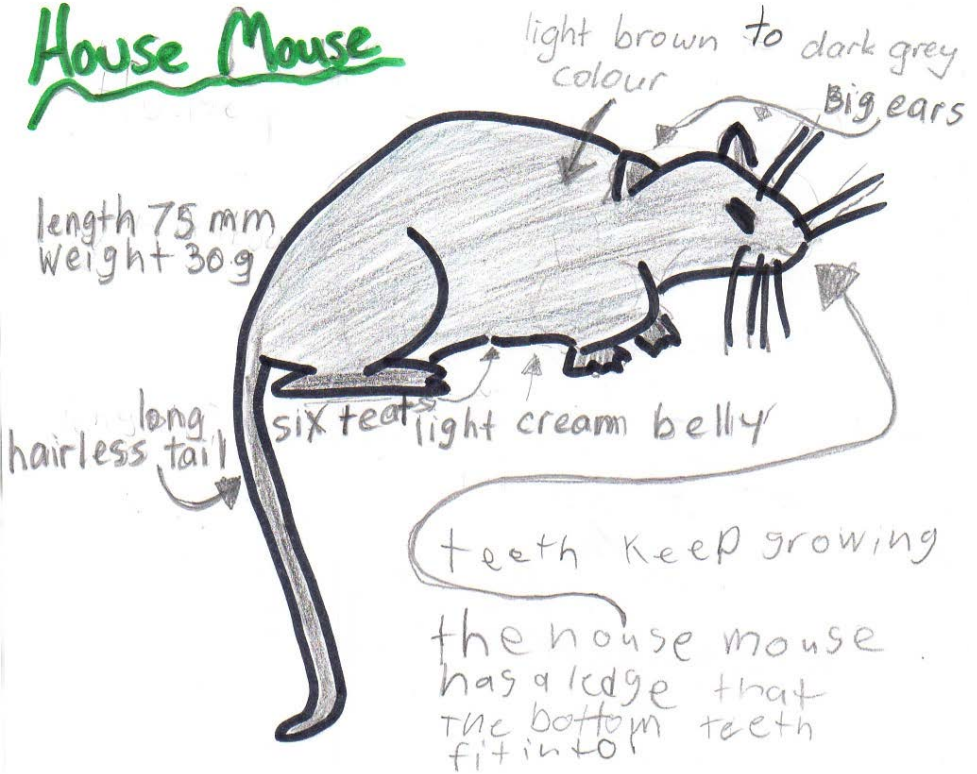 House Mouse
light brown to dark grey
colour
Big ears
length 75 mm
weight 30g
long
hairless tail
six teats
light cream belly
teeth keep growing
the house mouse
has a ledge that
The bottom teeth
fit into